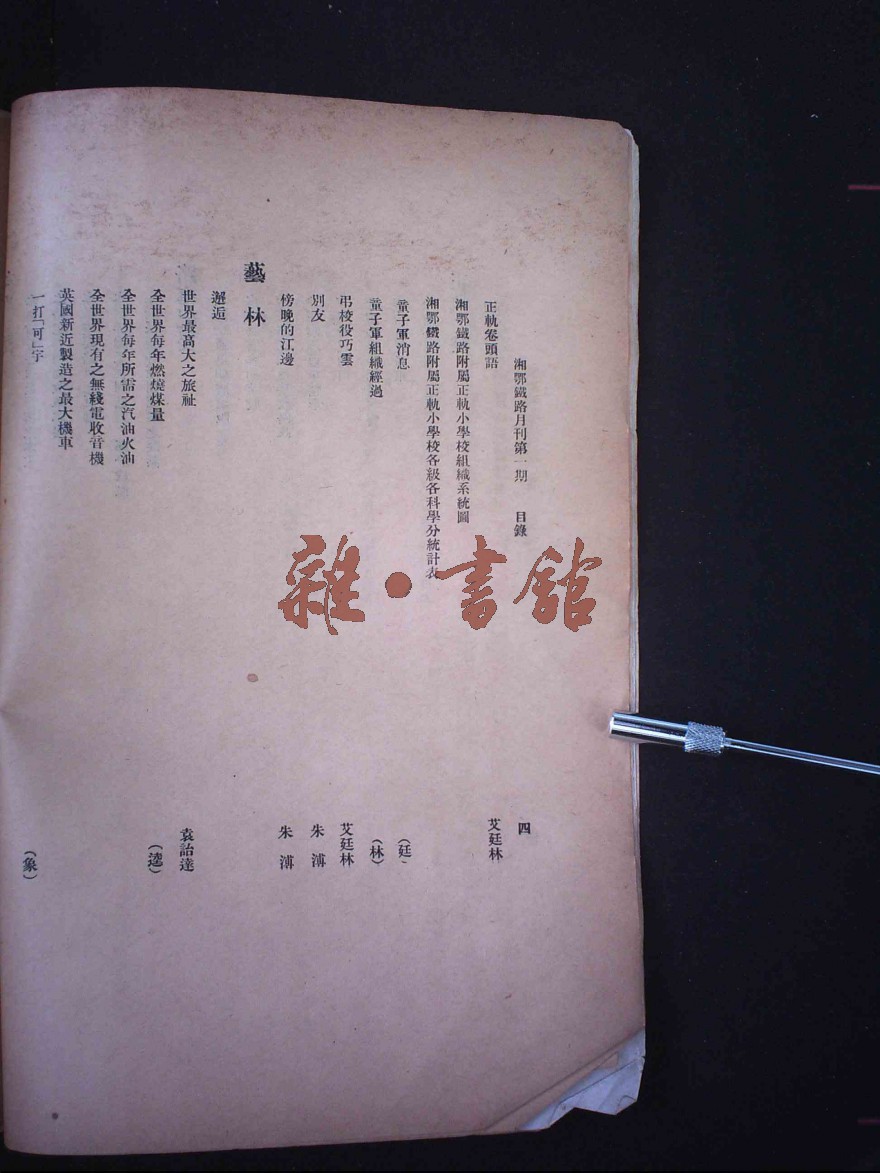 湘鄂鐵路月刊第一期 目錄 四
正軌卷頭語 艾廷林
湘鄂鐵路附屬正軌小學校組織系統圖
湘鄂鐵路附屬正軌小學校各級各科學分統計表
童子軍消息 (廷)
童子軍組織經過 (林)
弔校役巧雲 艾廷林
別友 朱溥
傍晚的江邊 朱溥
藝林
邂逅
世界最高大之旅社 袁詒達
全世界每年燃燒煤量 (逵)
全世界每年所需之汽油火油
全世界現有之無綫電收音機
英國新近製造之最大機車
一打「可」字 (象)
雜·書館